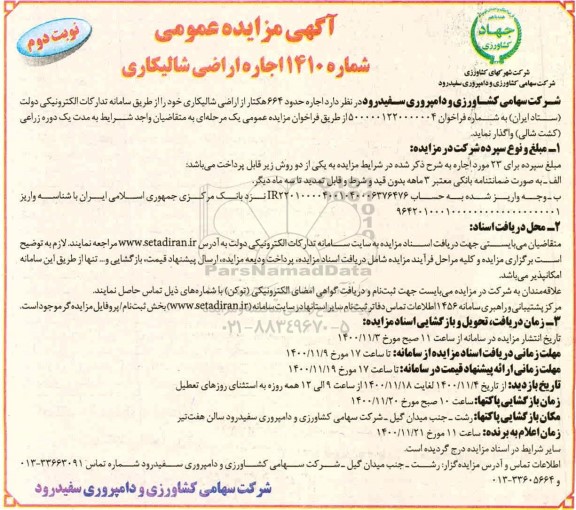 جهاد
کشاورزی
شرکت شهرکهای کشاورزی
شرکت سهامی کشاورزی و دامپروری سفیدرود
آگهی مزایده عمومی
شماره ۱۴۱۰ اجاره اراضی شالیکاری
نوبت دوم
شرکت سهامی کشاورزی و دامپروری سفیدرود در نظر دارد اجاره حدود ۶۶۴ هکتار از اراضی شالیکاری خود را از طریق سامانه تدارکات الکترونیکی دولت
(ستاد ایران) به شماره فراخوان ۵۰۰۰۰۰۱۲۲۰۰۰۰۰۰۴ از طریق فراخوان مزایده عمومی یک مرحله‌ای به متقاضیان واجد شرایط به مدت یک دوره زراعی
(کشت شالی) واگذار نماید.
۱ـ مبلغ و نوع سپرده شرکت در مزایده:
مبلغ سپرده برای ۲۳ مورد اجاره به شرح ذکر شده در شرایط مزایده به یکی از دو روش زیر قابل پرداخت می‌باشد:
الف ـ به صورت ضمانتنامه بانکی معتبر ۳ ماهه بدون قید و شرط و قابل تمدید تا سه ماه دیگر.
ب ـ وجه واریز شده به حساب نزد بانک مرکزی جمهوری اسلامی ایران با شناسه واریز
۲ـ محل دریافت اسناد:
متقاضیان می‌بایستی جهت دریافت اسناد مزایده به سایت سامانه تدارکات الکترونیکی دولت به آدرس www.setadiran.ir مراجعه نمایند. لازم به توضیح
است برگزاری مزایده و کلیه مراحل فرآیند مزایده شامل دریافت اسناد مزایده، پرداخت ودیعه مزایده، ارسال پیشنهاد قیمت، بازگشایی و... تنها از طریق این سامانه
امکانپذیر می‌باشد.
علاقه‌مندان به شرکت در مزایده می‌بایست جهت ثبت‌نام و دریافت گواهی امضای الکترونیکی (توکن) با شماره‌های ذیل تماس حاصل نمایند.
مرکز پشتیبانی و راهبری سامانه ۱۴۵۶ اطلاعات تماس دفاتر ثبت‌نام سایر استانها در سایت سامانه (www.setadiran.ir) بخش ثبت‌نام/پروفایل مزایده گر موجود است.
۳ـ زمان دریافت، تحویل و بازگشایی اسناد مزایده:
تاریخ انتشار مزایده در سامانه از ساعت ۱۱ صبح مورخ ۱۴۰۰/۱۱/۳
مهلت زمانی دریافت اسناد مزایده از سامانه: تا ساعت ۱۷ مورخ ۱۴۰۰/۱۱/۹
مهلت زمانی ارائه پیشنهاد قیمت در سامانه: تا ساعت ۱۷ مورخ ۱۴۰۰/۱۱/۱۹
تاریخ بازدید: از تاریخ ۱۴۰۰/۱۱/۴ لغایت ۱۴۰۰/۱۱/۱۸ از ساعت ۹ الی ۱۲ همه روزه به استثنای روزهای تعطیل
زمان بازگشایی پاکتها: ساعت ۱۰ صبح مورخ ۱۴۰۰/۱۱/۲۰
مکان بازگشایی پاکتها: رشت ـ جنب میدان گیل ـ شرکت سهامی کشاورزی و دامپروری سفیدرود سالن هفت‌تیر
زمان اعلام به برنده: ساعت ۱۱ مورخ ۱۴۰۰/۱۱/۲۱
سایر شرایط در اسناد مزایده درج گردیده است.
اطلاعات تماس و آدرس مزایده‌گزار: رشت ـ جنب میدان گیل ـ شرکت سهامی کشاورزی و دامپروری سفیدرود شماره تماس ۳۳۶۶۳۰۹۱-۰۱۳
و ۳۳۶۰۵۶۶۴-۰۱۳
شرکت سهامی کشاورزی و دامپروری سفیدرود
ParsNamadData
۰۲۱-۸۸۳۴۹۶۷۰-۵